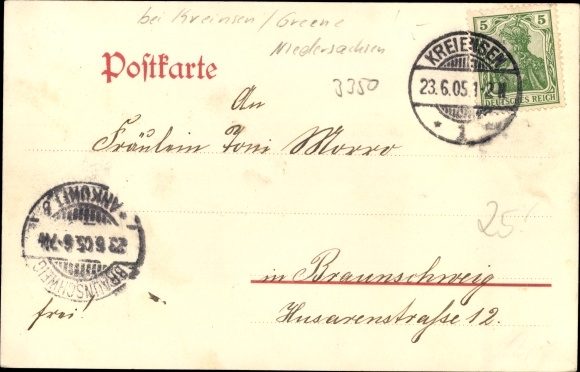 bei Kreinsen/Greene
Niedersachsen
Postkarte
3350
KREIENSEN
23.6.05.1-2N
* 1
5 5
DEUTSCHES REICH
An
Fräulein Toni Morro
ANKUNFT.
23.6.05.6-7N
BRAUNSCHWEIG
25
in Braunschweig
Husarenstraße 12.
frei!